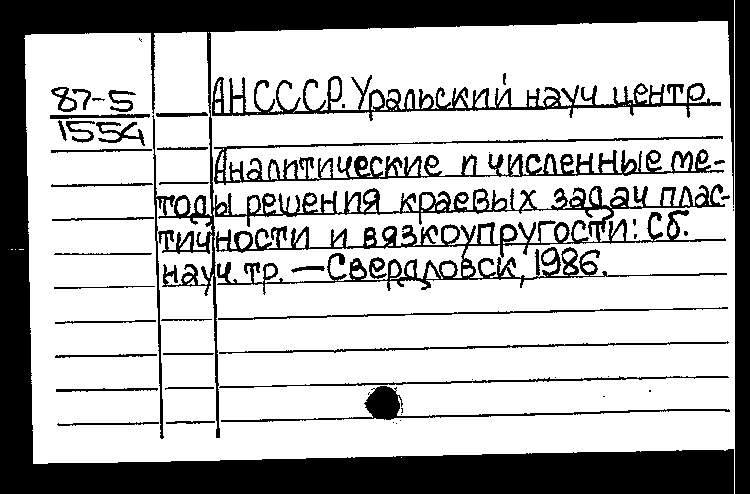 87-5
1554
АН СССР. Уральский науч центр.
Аналитические и численные ме-
тоды решения краевых задач плас-
тичности и вязкоупругости: Сб.
науч. тр. — Свердловск, 1986.